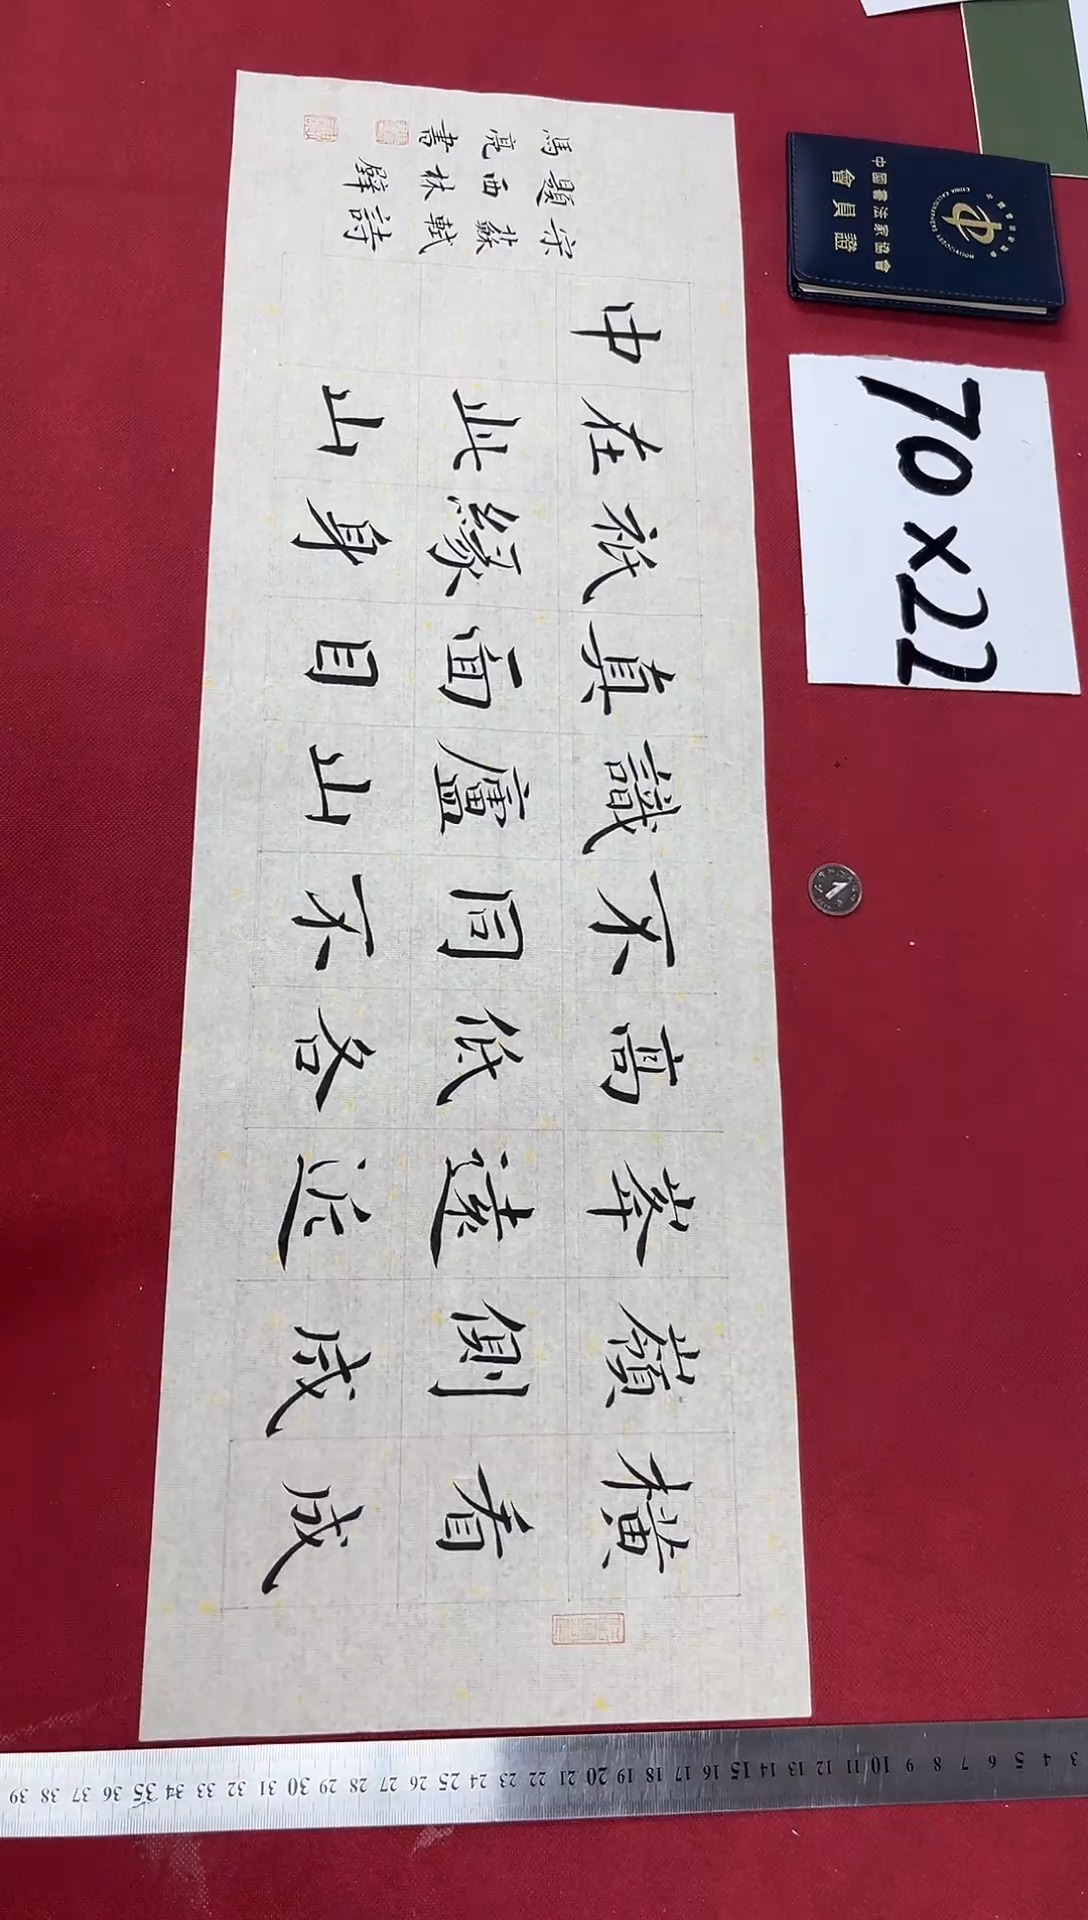 橫看成
嶺側成
峯遠近
高低各
不同不
識廬山
真面目
祇緣身
在此山
中
宋蘇軾詩
題西林壁
馬亮書
中國書法家協會
會員證
70×22
1
3 4 5 6 7 8 9 10 11 12 13 14 15 16 17 18 19 20 21 22 23 24 25 26 27 28 29 30 31 32 33 34 35 36 37 38 39